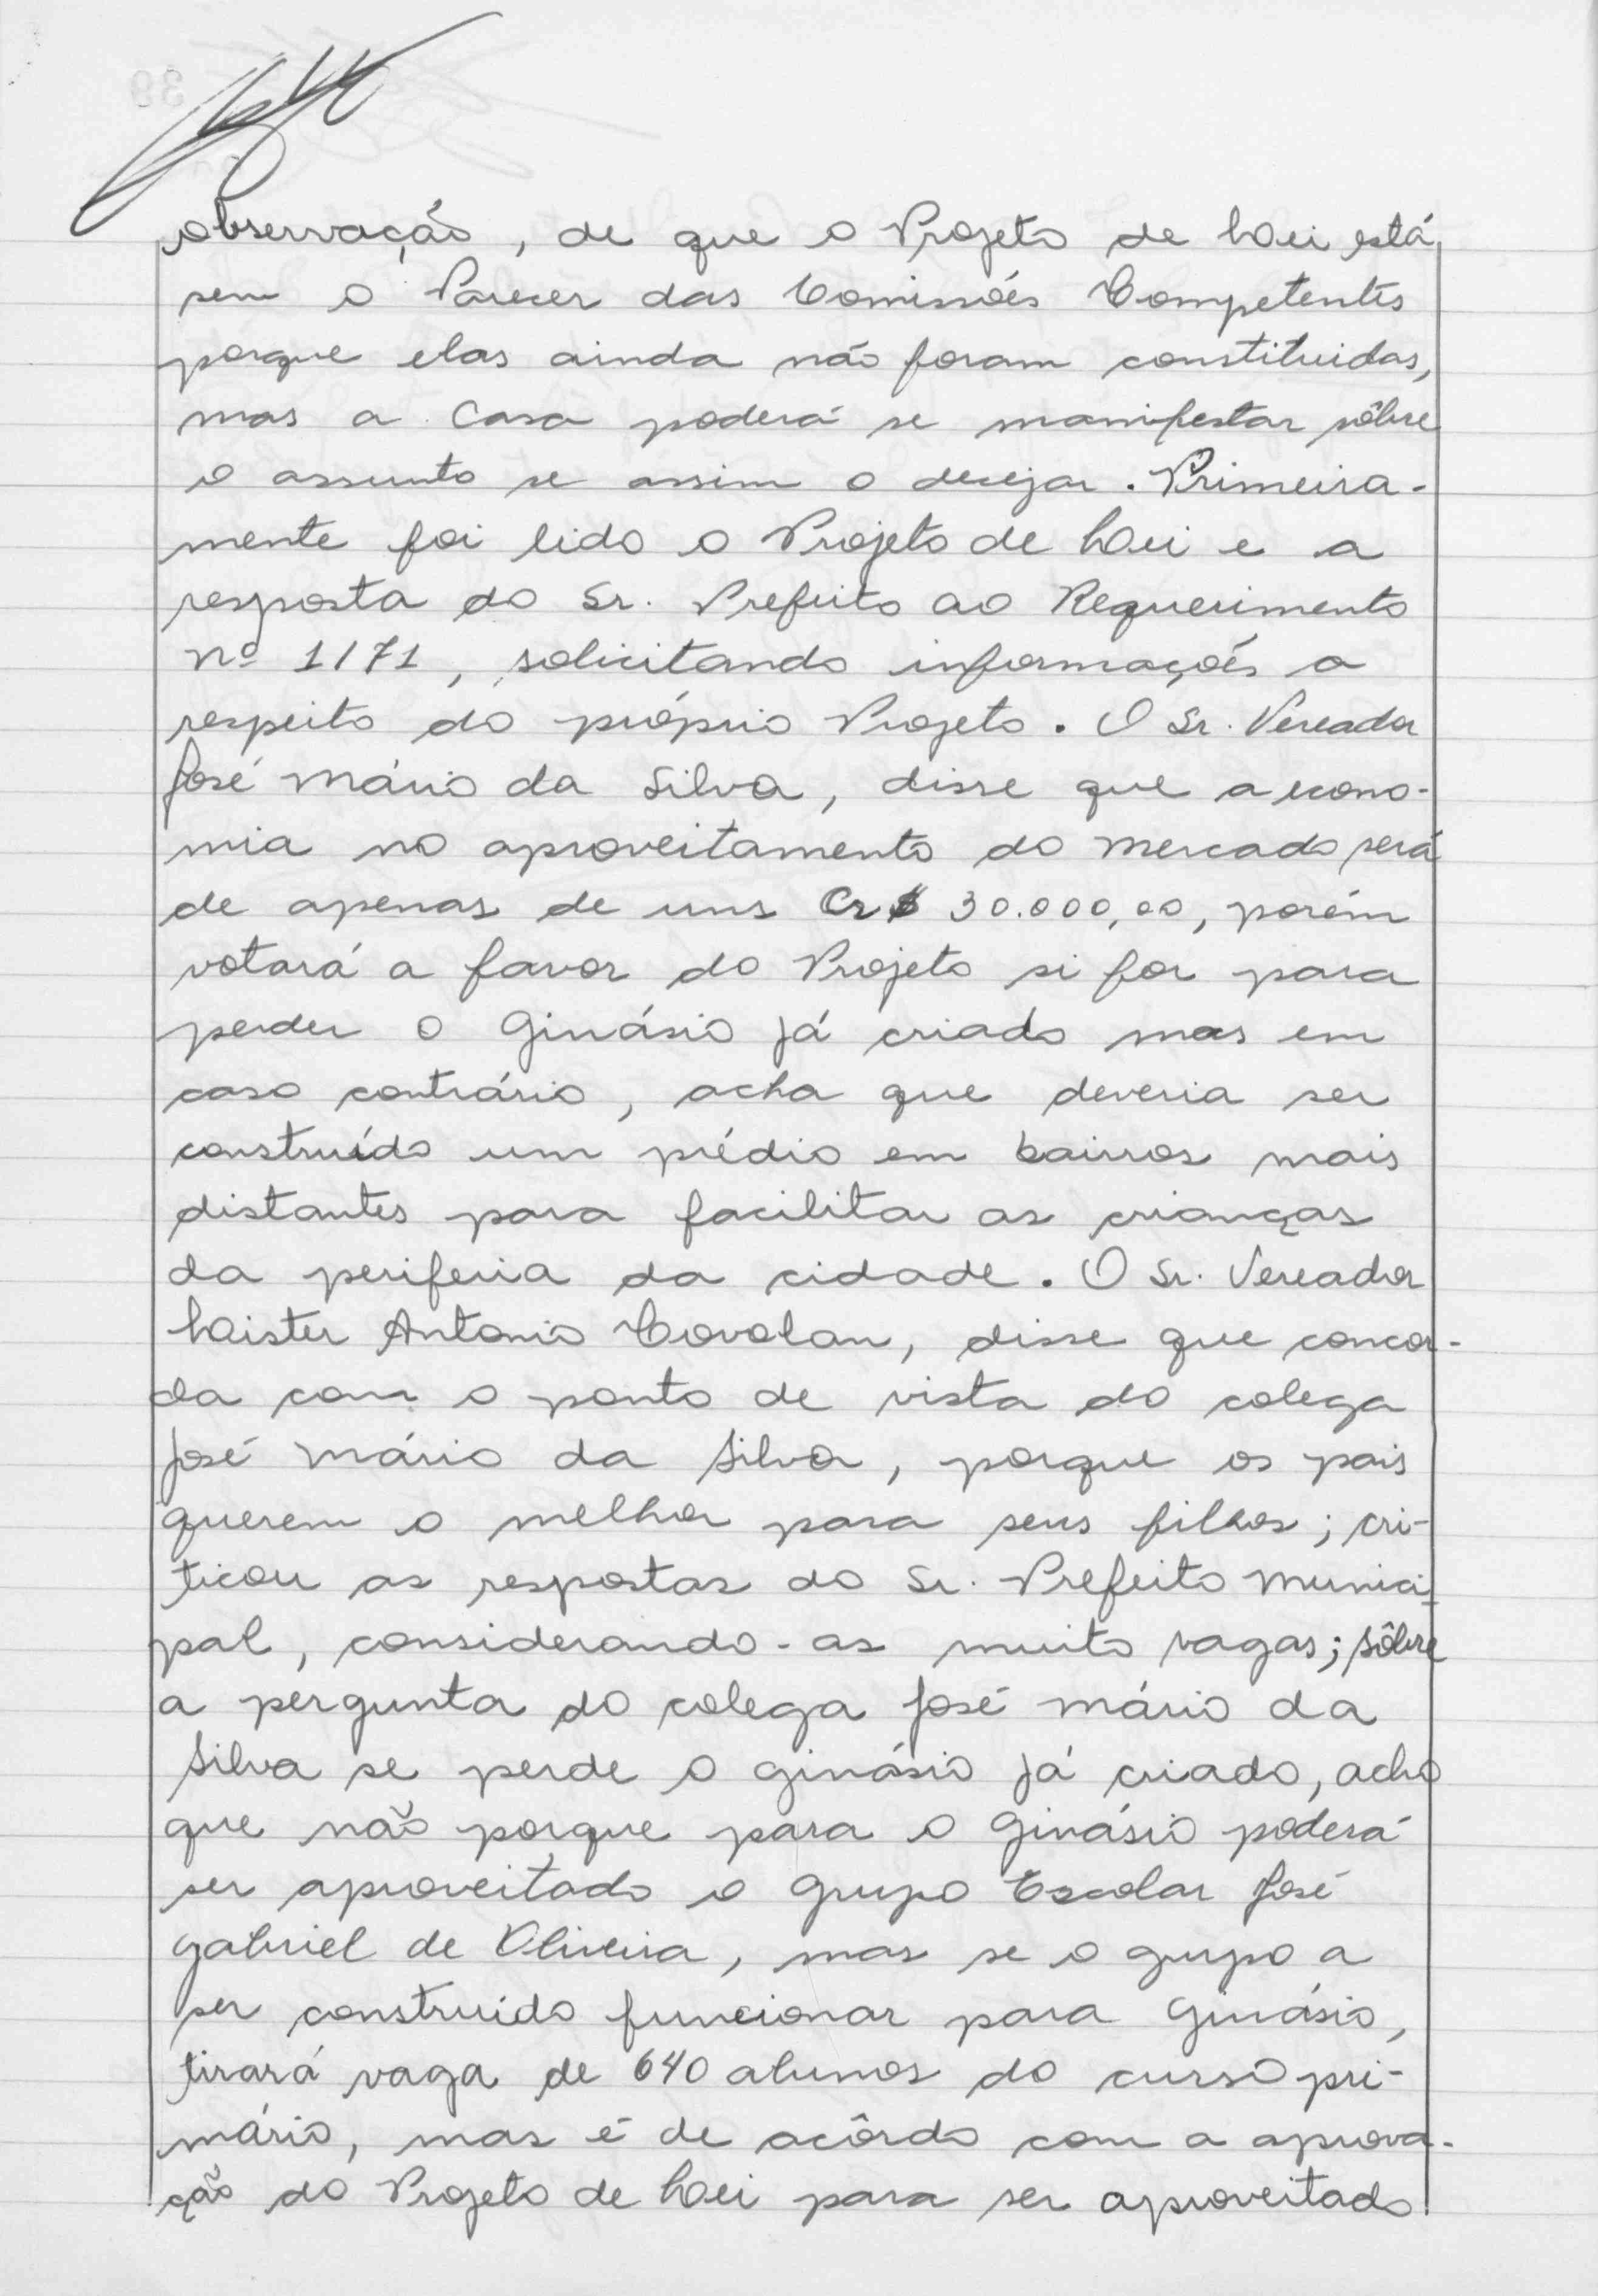 observação, de que o Projeto de Lei está
sem o Parecer das Comissões Competentes
porque elas ainda não foram constituidas,
mas a Casa poderá se manifestar sôbre
o assunto se assim o desejar. Primeira-
mente foi lido o Projeto de Lei e a
resposta do Sr. Prefeito ao Requerimento
nº 1/71, solicitando informações a
respeito do próprio Projeto. O Sr. Vereador
José Mário da Silva, disse que a econo-
mia no aproveitamento do mercado será
de apenas de uns Cr$ 30.000,00, porém
votará a favor do Projeto si for para
perder o Ginásio já criado mas em
caso contrário, acha que deveria ser
construído um prédio em bairros mais
distantes para facilitar as crianças
da periferia da cidade. O Sr. Vereador
Laister Antonio Covolan, disse que concor-
da com o ponto de vista do colega
José Mário da Silva, porque os pais
querem o melhor para seus filhos; cri-
ticou as respostas do Sr. Prefeito Munici-
pal, considerando-as muito vagas; sôbre
a pergunta do colega José Mário da
Silva se perde o ginásio já criado, acho
que não porque para o Ginásio poderá
ser aproveitado o Grupo Escolar José
Gabriel de Oliveira, mas se o grupo a
ser construido funcionar para Ginásio,
tirará vaga de 640 alunos do curso pri-
mário, mas é de acôrdo com a aprova-
ção do Projeto de Lei para ser aproveitado